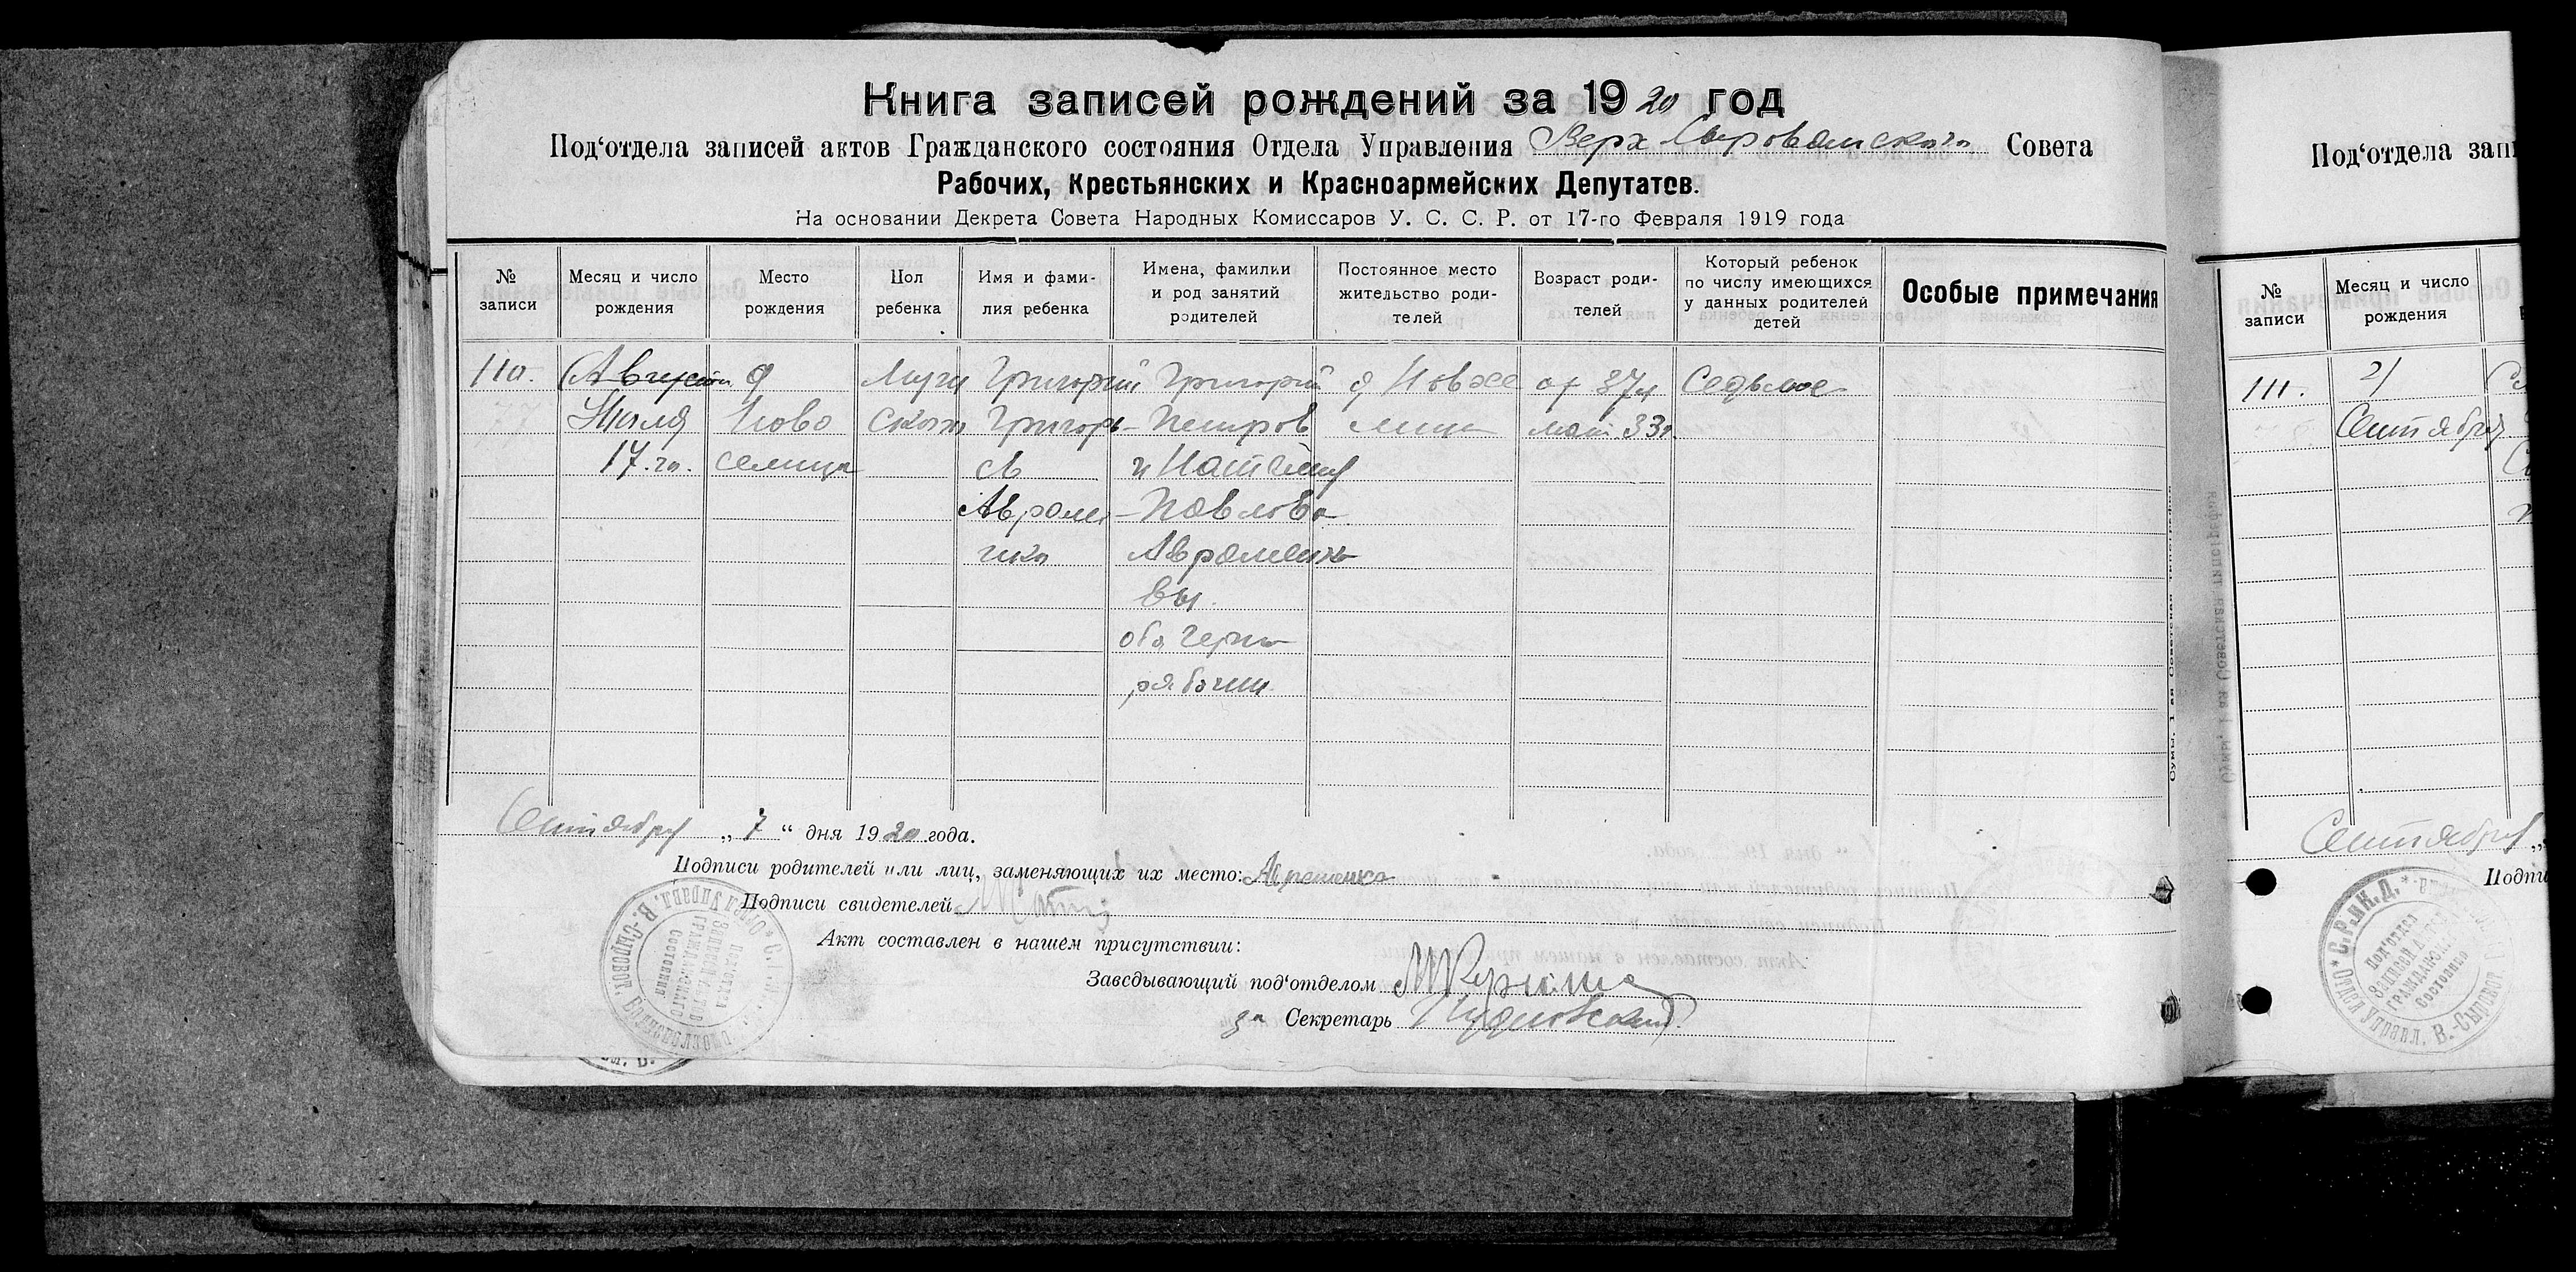 Книга записей рождений за 1920 год
Под‘отдела записей актов Гражданского состояния Отдела Управления Верх Сыроватского Совета
Рабочих, Крестьянских и Красноармейских Депутатов.
На основании Декрета Совета Народных Комиссаров У. С. С. Р. от 17-го Февраля 1919 года
№ записи
Месяц и число рождения
Место рождения
Пол ребенка
Имя и фами- лия ребенка
Имена, фамилии и род занятий родителей
Постоянное место жительство роди- телей
Возраст роди- телей
Который ребенок по числу имеющихся у данных родителей детей
Особые примечания
110.
Августа
Июля
17.го.
д
Ново
селица
Мужи
ской
Григорий
Григорь-
в
Авраме
нко
Григорий
Петров
и Наталия
Павлова
Авраменко
вы
оба черно
рабочии
д Новосе
лица
от 37л
мат 33л.
Седьмое
Сентября „7“ дня 1920 года.
Подписи родителей или лиц, заменяющих их место: Авраменко
Подписи свидетелей
Акт составлен в нашем присутствии:
Заведывающий под‘отделом
за Секретарь
Сумы, 1 ая Советская типография
Под‘отдела зап
№ записи
Месяц и число рождения
111.
21
Сентября
Сентября „
Подпи
Под‘отдел
Записей
Гражданск.
Состояния